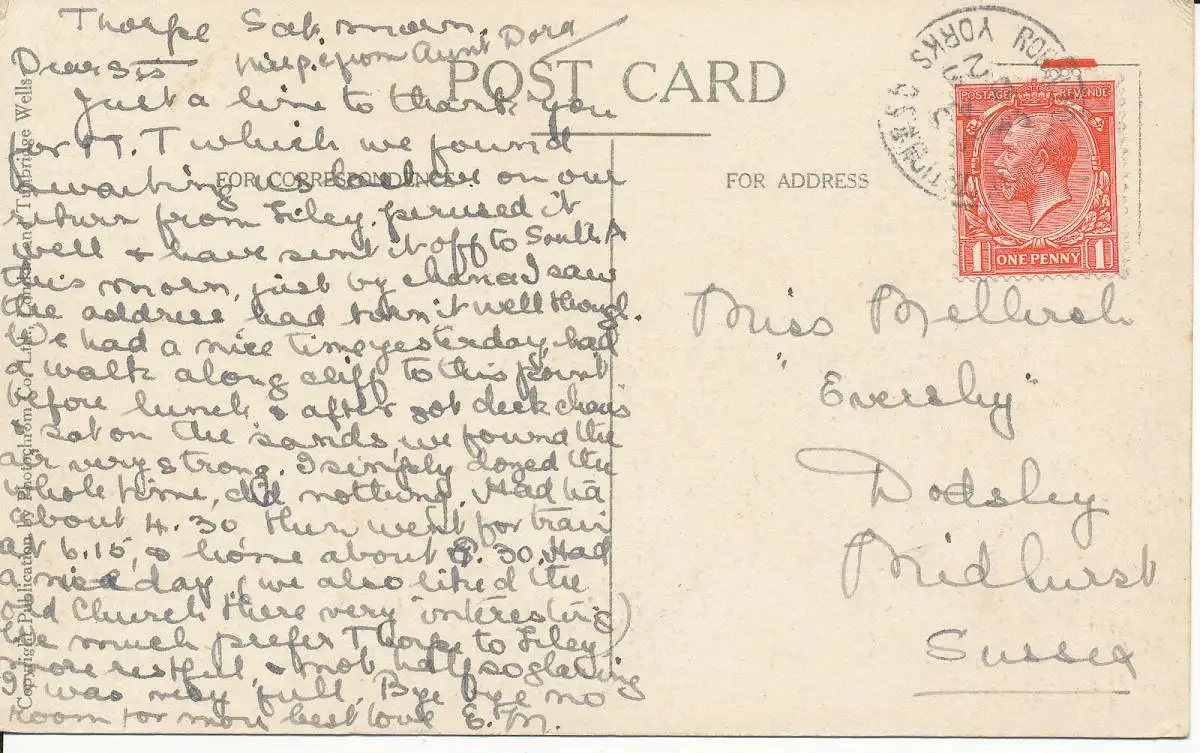 Thorpe Sat. morn.
Dear Sis from Aunt Dora
POST CARD
Just a line to thank you
for M.T which we found
awaiting us here on our
return from Filey. perused it
well & have sent it off to South A
this morn, just by chance I saw
the address had torn it well though.
We had a nice time yesterday, had
a walk along cliff to this point
before lunch & after got deck chairs
& sat on the sands, we found the
air very strong. I simply dozed the
whole time, did nothing. Had tea
about 4.30 then went for train
at 6.15, & home about 8.30. Had
a nice day, (we also liked the
old Church there very interesting)
We much prefer Thorpe to Filey
more restful, & not half so glaring
& was very full. Bye bye no
room for more best love E.M.
FOR CORRESPONDENCE.
FOR ADDRESS
Miss Mellersh
"Eversley"
Dodsley
Midhurst
Sussex
POSTAGE REVENUE
1 ONE PENNY 1
YORKS
22
Copyright Publication by Photochrom Co. Ltd. London and Tunbridge Wells